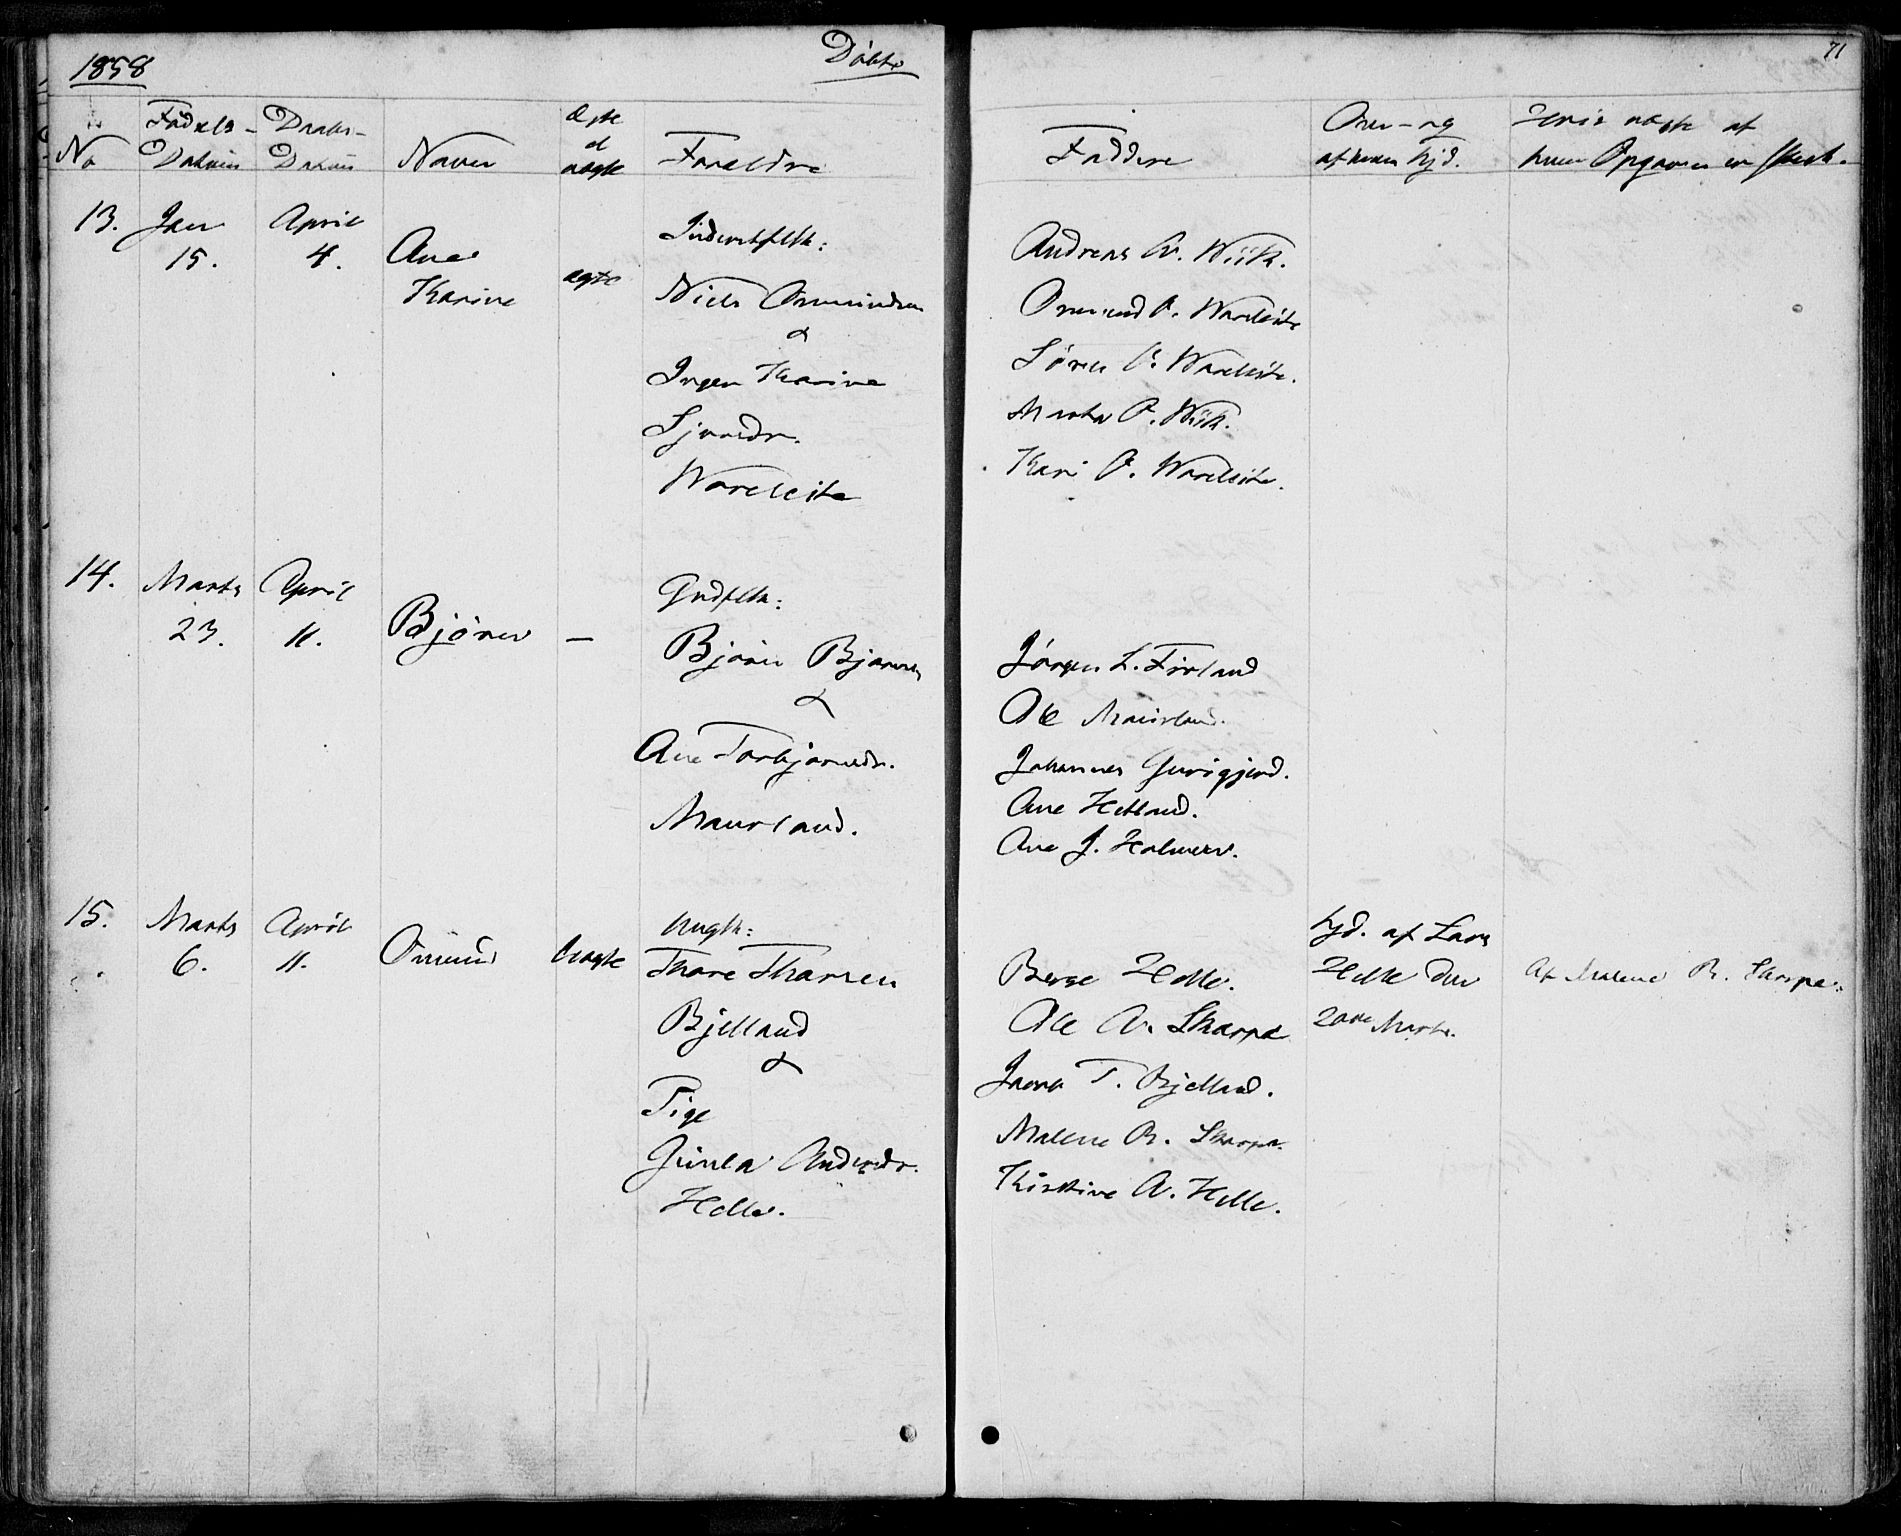 1858
Döbte
71
No
Födsels-Datum
Daabs-Datum
Navn
Ægte el uægte
Forældre
Faddere
af hvem hjd.
Hvis uægte af hvem Opgaven er skeet.
13.
Jan 15.
April 4.
Ane Karine
ægte
Niels Osmundsen
&
Inger Karine
Sjursdr.
Wareleite
Andreas A. Wiik.
Osmund O. Wareleite
Sören O. Wareleite.
Marta O. Wiik.
Kari O. Wareleite.
14.
Marts 23.
April 11.
Björen
—
Grdflk:
Björn Bjørnsen
&
Ane Torbjørnsdr.
Maurland.
Jörgen L. Förland
Ole Maurland.
Johannes
Ane Hetland.
Ane J. Holmen.
15.
Marts 6.
April 11.
Osmund
Uægte
Ungk:
Thore Thorsen
Bjelland
&
Pige
Gunla Andersdr.
Helle.
Berge Helle.
Ole A. Skarpe
Jacob T. Bjelland.
Malene R. Skarpe.
Kirstine A. Helle.
hjd. af Lars
Helle den
20de Marts.
Af Malene R. Skarpe.